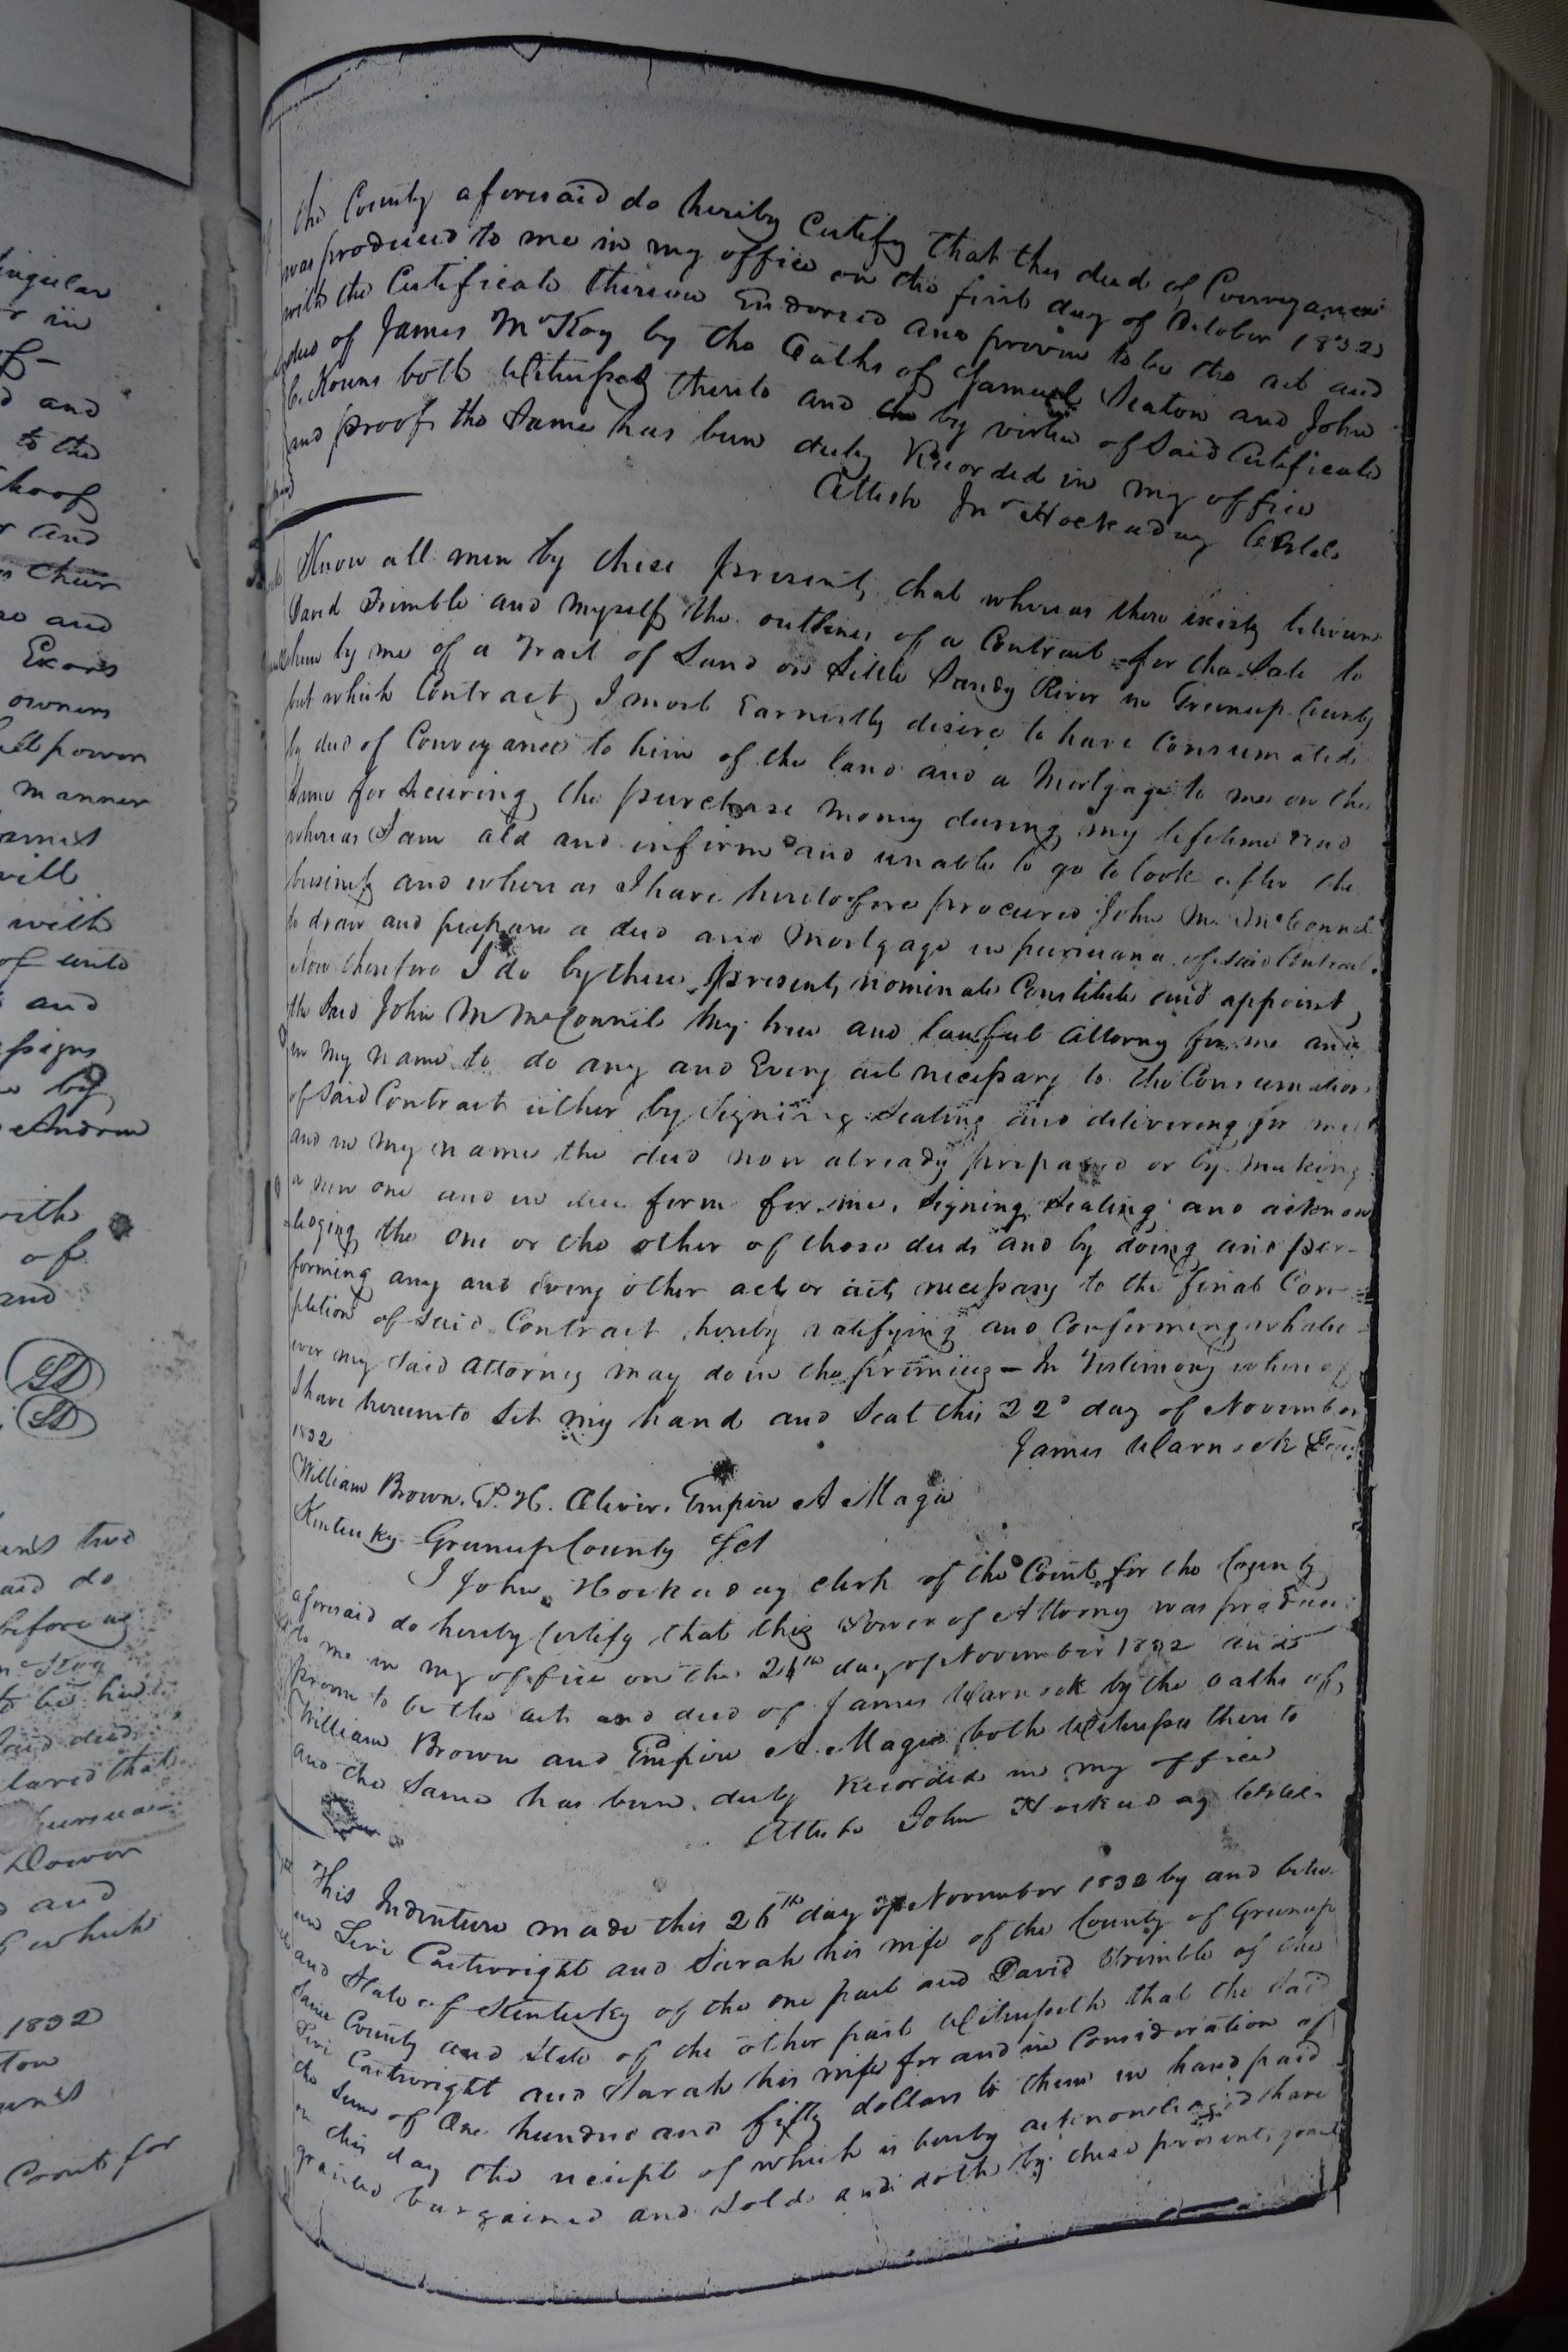 ingular
r in
of -
and
to the
hoof
r and
their
so and
Exors
owners
ll power
manner
will
with
of unto
and
ssigns
by
Andrew
with
of
and
SD
SD
two
do
before
McKoy
to be
said deed
lared that
Dower
and
which
1832
ton
Court for
the County aforesaid do hereby Certify that this deed of Conveyance
was produced to me in my office on the first day of October 1832
with the Certificate thereon Endorsed and proven to be the act and
deed of James McKoy by the Oaths of Samuel Seaton and John
C. Kouns both Witnesses thereto and by virtue of Said Certificate
and proof the Same has been duly Recorded in my office
Attest Jno Hockaday
Know all men by these presents that whereas there exists between
David Trimble and myself the outlines of a Contract for the Sale to
him by me of a Tract of Land on Little Sandy River in Greenup County
but which Contract I most Earnestly desire to have Consumated
by deed of Conveyance to him of the land and a Mortgage to me on the
Same for Securing the purchase money during my lifetime and
whereas I am old and infirm and unable to go to look after the
business and where as I have heretofore procured John M. McConnel
to draw and prepare a deed and Mortgage in pursuance of said Contract
Now therefore I do by these presents nominate Constitute and appoint
the Said John M McConnel my true and lawful attorny for me and
in my name to do any and Every act necessary to the Consumation
of Said Contract either by Signing Sealing and delivering for me
and in my name the deed now already prepared or by making
a new one and in due form for me, Signing Sealing and acknow
ledging the one or the other of those deeds and by doing and per-
forming any and every other act or acts necessary to the final Com=
pletion of Said Contract hereby ratifying and Confirming whatso-
ever my Said Attorney may do in the premises - In Testimony whereof
I have hereunto Set my hand and Seal this 22d day of November
1832
James Warnock Seal
William Brown. P. H. Oliver. Empire A Magee
Kentucky Greenup County Sct
I John Hockaday clerk of the Court for the County
aforesaid do hereby Certify that this Power of Attorny was produced
to me in my office on the 26th day of November 1832 and
proven to be the act and deed of James Warnock by the oaths of
William Brown and Empire A. Magee both Witnesses thereto
and the Same has been duly Recorded in my office
Atteste John Hockaday
This Indenture made this 26th day of November 1832 by and betw-
een Levi Cartwright and Sarah his wife of the County of Greenup
and State of Kentucky of the one part and David Trimble of the
Same County and State of the other part Witnesseth that the Said
Levi Cartwright and Sarah his wife for and in Consideration of
the Sum of One hundred and fifty dollars to them in hand paid
on this day the receipt of which is hereby acknowledged have
granted bargained and Sold and doth by these presents grant